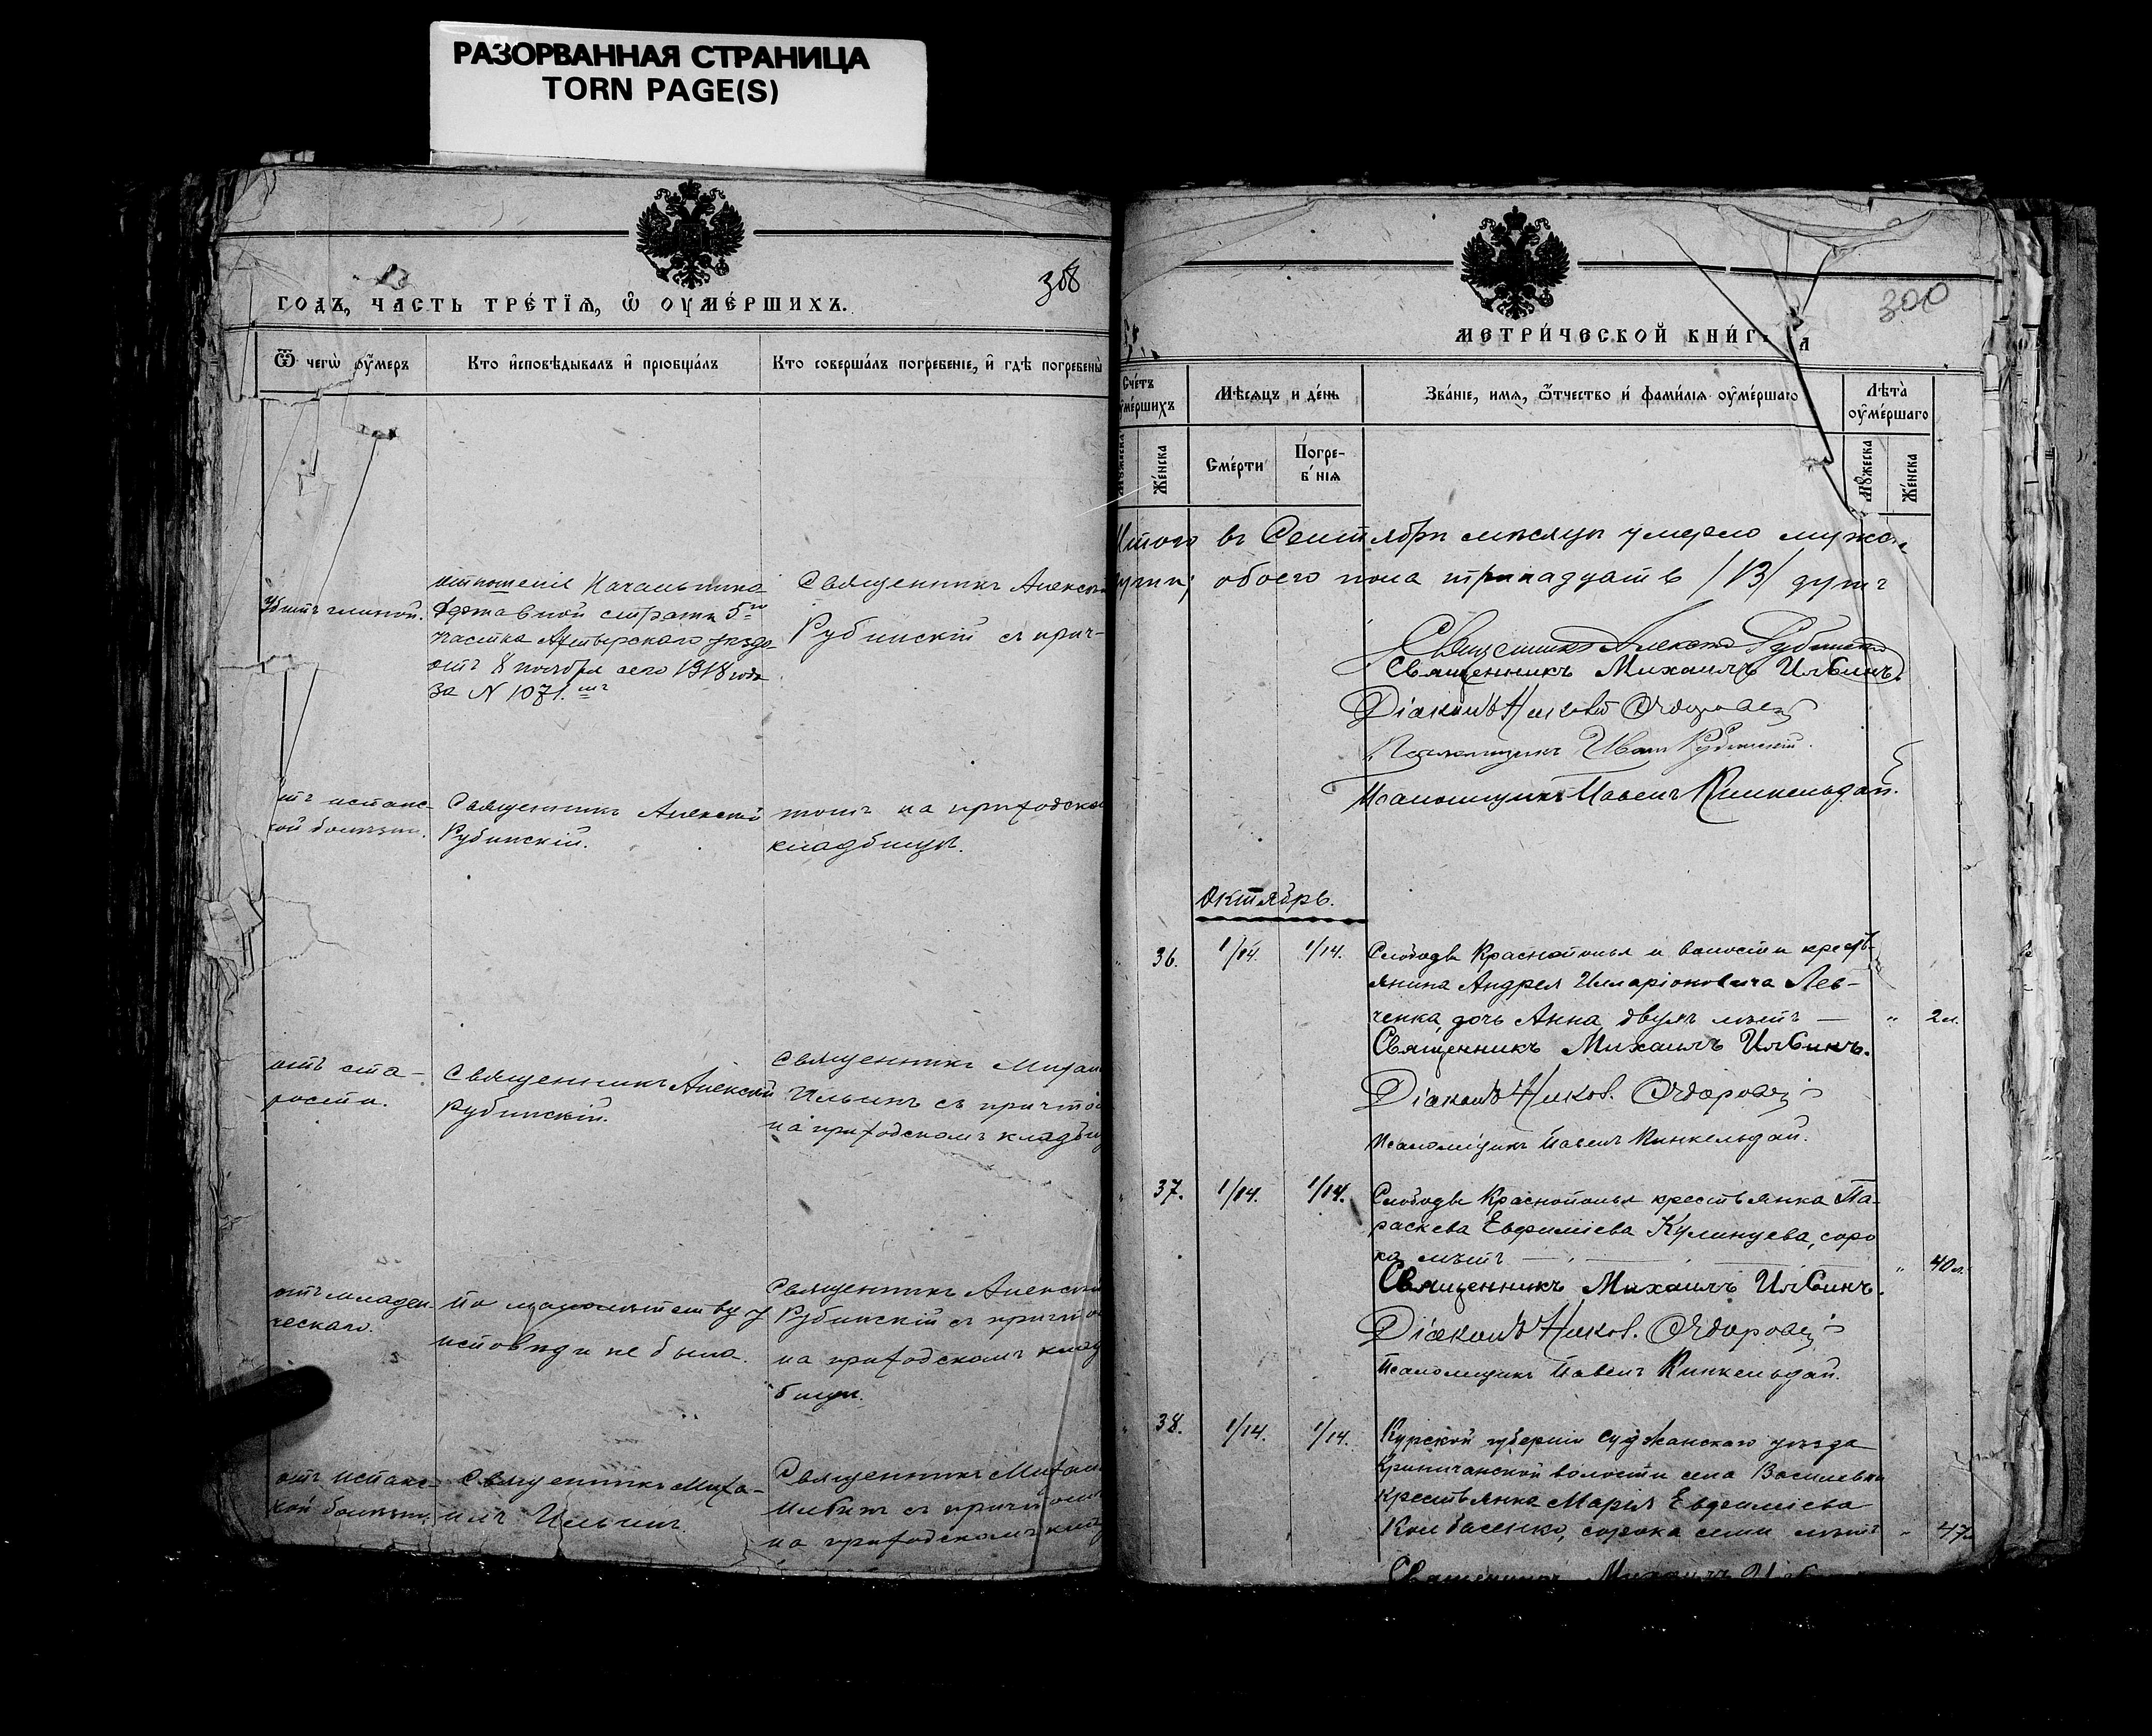 РАЗОРВАННАЯ СТРАНИЦА
TORN PAGE(S)
308
ГОДЪ, ЧАСТЬ ТРЕ́ТІѦ, Ѡ҆ ОУМЕ́РШИХЪ.
Ѿ чегѡ̀ оу҆́меръ
Кто и҆сповѣ́дывалъ и҆ пріобща́лъ
Кто соверша́лъ погребе́ніе, и҆ гдѣ̀ погребены̀
Убитъ миной.
отношеніе Начальника
Державной стражи 5го
участка Ахтырскаго уѣзда
отъ 8 ноября сего 1918 года
за N 1071.
Священникъ Алексѣй
Рубинскій съ прич-
отъ испанс-
кой болѣзни.
Священникъ Алексѣй
Рубинскій.
томъ на приходско
кладбищѣ.
отъ ста-
рости.
Священникъ Алексѣй
Рубинскій.
Священникъ Михаи
Ильинъ съ причто
на приходскомъ кладби
отъ младен
ческаго.
По малолѣтству у
исповѣди не была.
Священникъ Алексѣй
Рубинскій съ причто
на приходскомъ клад
бищѣ.
отъ испанс-
кой болѣзни.
Священникъ Миха-
илъ Ильинъ.
Священникъ Михаи
Ильинъ съ причтом
на приходскомъ клад
300
МЕТРИ́ЧЕСКОЙ КНИ́Г
Сче́тъ
оу҆ме́ршихъ
Мѣ́сяцъ и де́нь
Зва́ніе, имя, ѻ҆́тчество и҆ фами́лія оу҆ме́ршаго
Лѣта̀
оу҆ме́ршаго
Же́нска
Сме́рти
Погре-
б нія
Мꙋ́жеска
Же́нска
Итого въ Сентябрѣ мѣсяцѣ умерло мужс.
обоего пола тринадцать /13/ душъ
Священникъ Алексѣй Рубинскій
Священникъ Михаилъ Ильинъ.
Діаконъ Никол.
Псаломщикъ Иван Рубинскій.
Псаломщикъ Павелъ Кинкельдай.
Октябрь.
36. 1/14. 1/14. Слободы Краснополья и волости кресть-
янина Андрея Илларіоновича Лев-
ченка дочь Анна, двухъ лѣтъ — " 2 л.
Священникъ Михаилъ Ильинъ.
Діаконъ Никол.
Псаломщикъ Павелъ Кинкельдай.
37. 1/14. 1/14. Слободы Краснополья крестьянка Па-
раскева Евфиміева Кулинцева, соро
ка лѣтъ — " 40 л.
Священникъ Михаилъ Ильинъ.
Діаконъ Никол.
Псаломщикъ Павелъ Кинкельдай.
38. 1/14. 1/14. Курской губерніи Суджанскаго уѣзда
Криничанской волости села Василевки
крестьянка Марія Евдокиміева
Колбасенко, сорока семи лѣтъ " 47
Священникъ Михаилъ